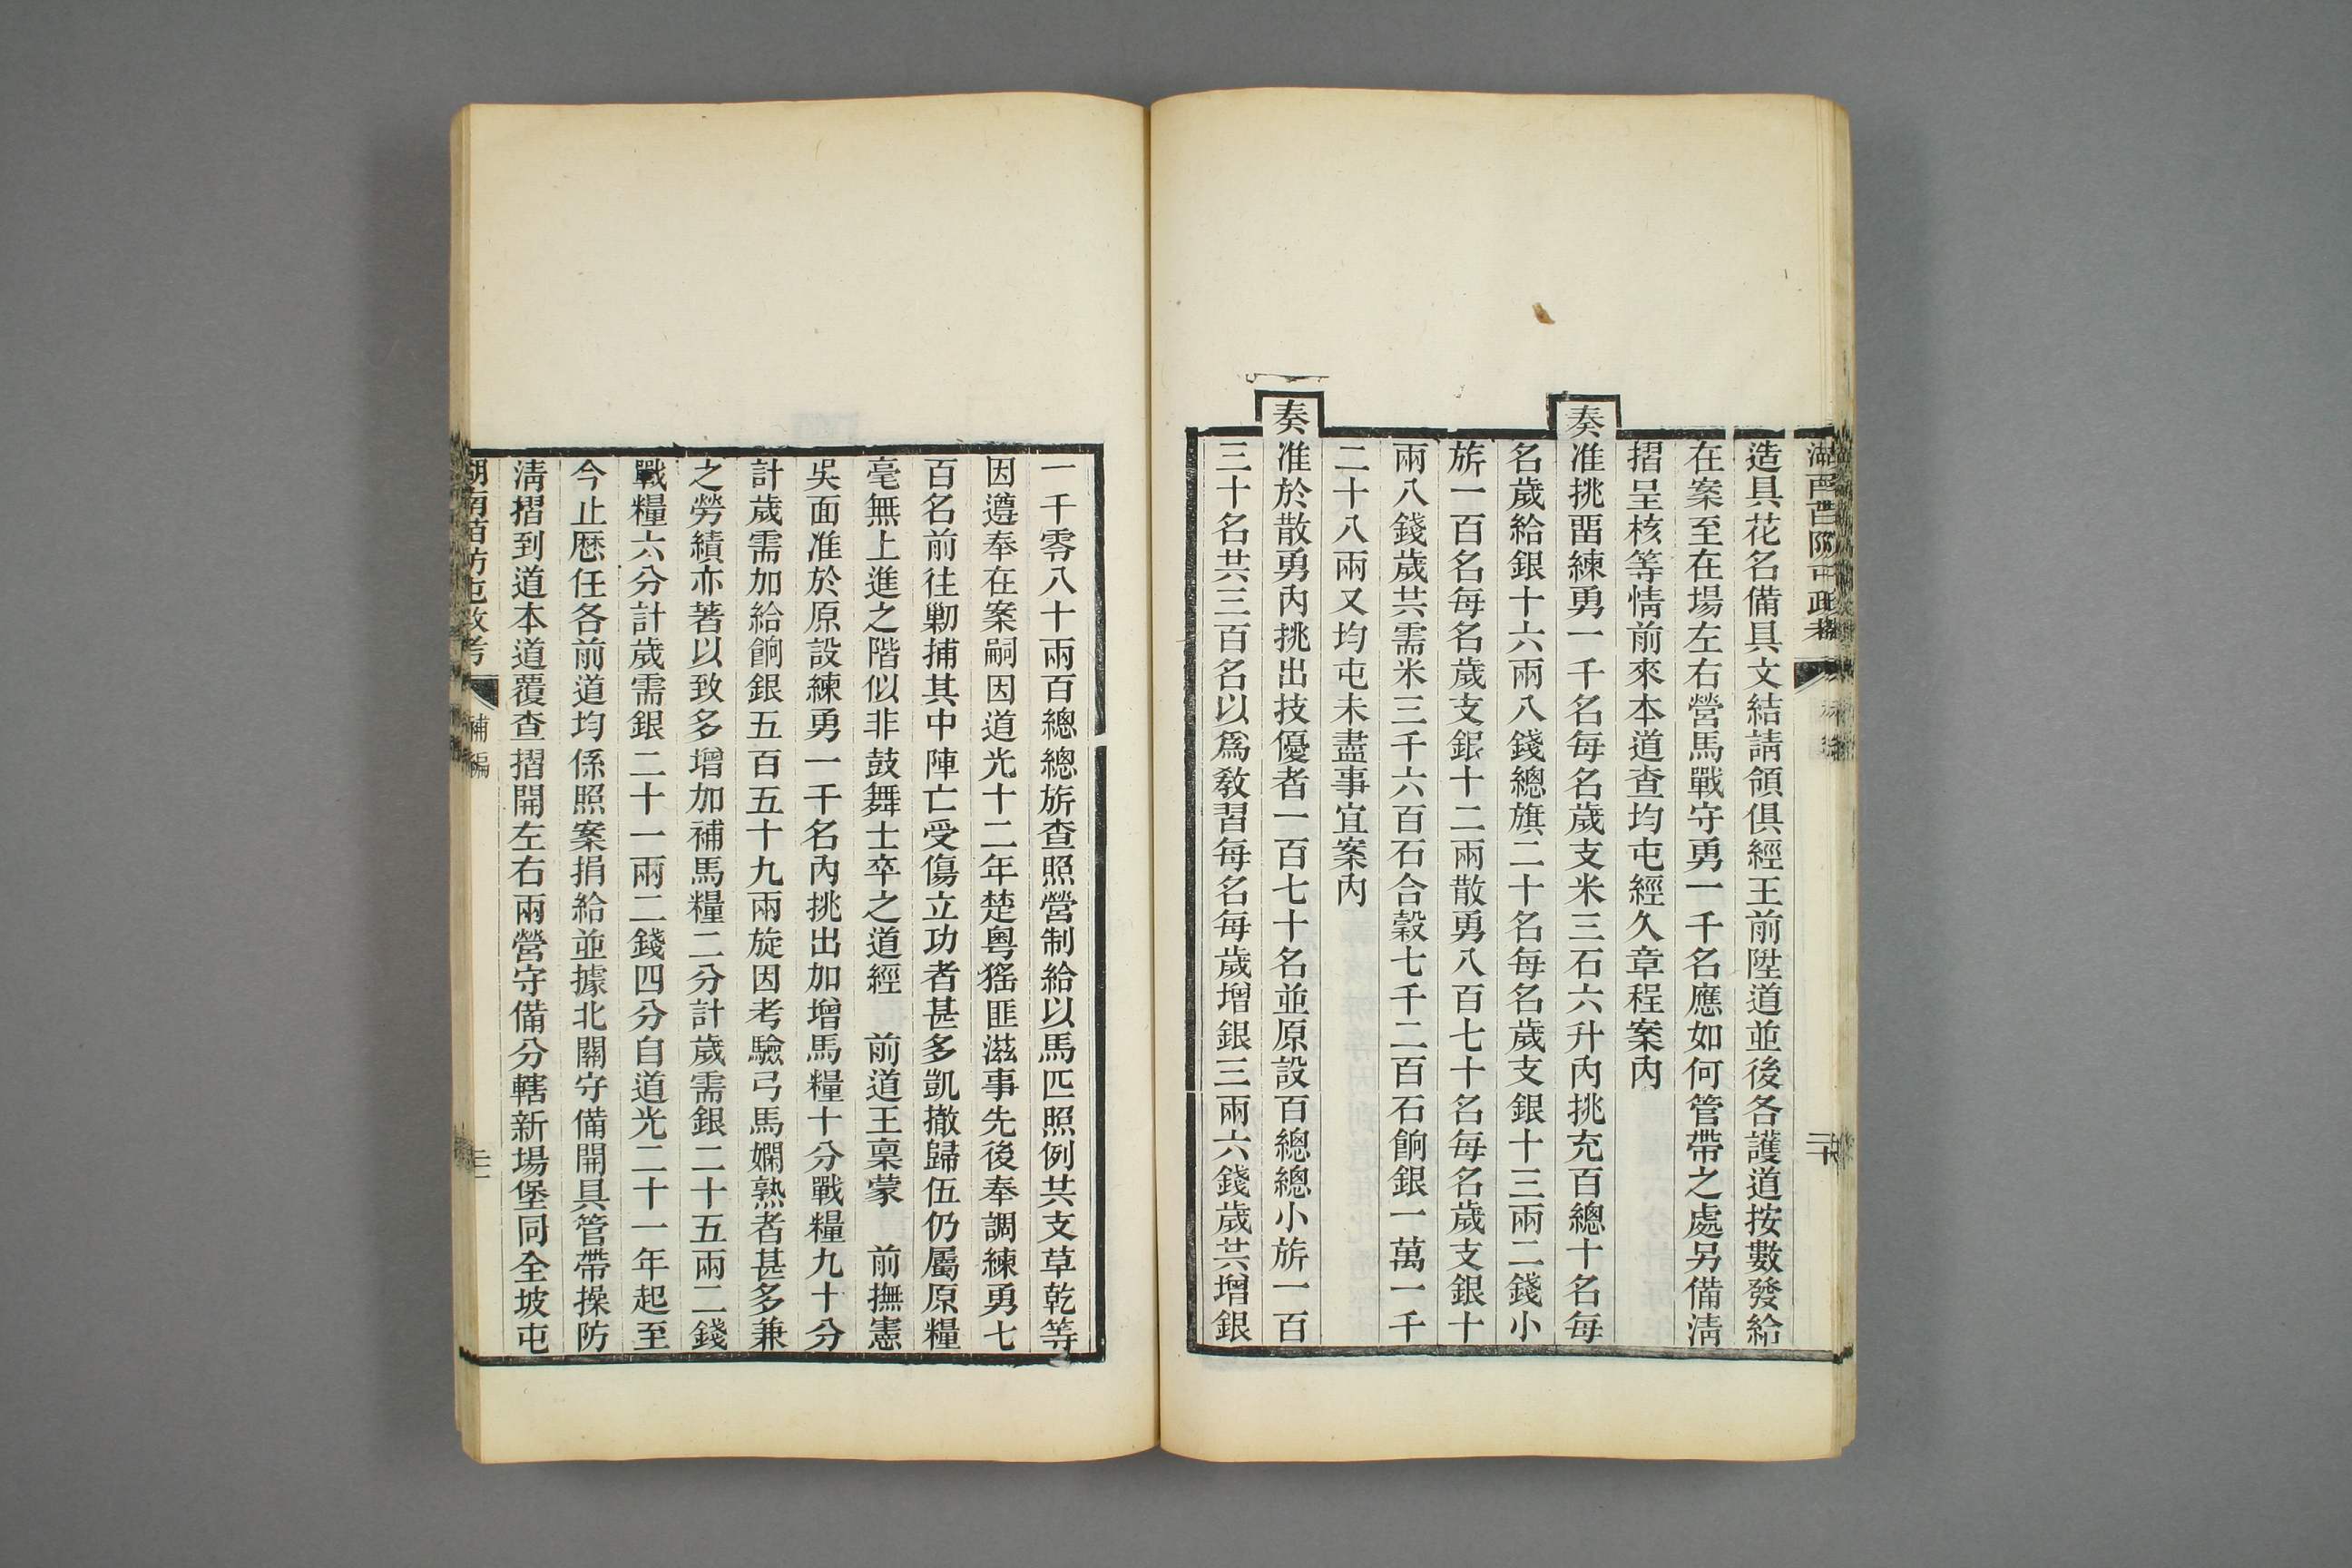 造具花名備具文結請領俱經王前陞道並後各護道按數發給
在案至在場左右營馬戰守勇一千名應如何管帶之處另備淸
摺呈核等情前來本道查均屯經久章程案內
奏准挑畱練勇一千名每名歲支米三石六升內挑充百總十名每
名歲給銀十六兩八錢總旗二十名每名歲支銀十三兩二錢小
旂一百名每名歲支銀十二兩散勇八百七十名每名歲支銀十
兩八錢歲共需米三千六百石合穀七千二百石餉銀一萬一千
二十八兩又均屯未盡事宜案內
奏准於散勇內挑出技優者一百七十名並原設百總總小旂一百
三十名共三百名以爲敎習每名每歲增銀三兩六錢歲共增銀
一千零八十兩百總總旂查照營制給以馬匹照例共支草乾等
因遵奉在案嗣因道光十二年楚粵猺匪滋事先後奉調練勇七
百名前往勦捕其中陣亡受傷立功者甚多凱撤歸伍仍屬原糧
毫無上進之階似非鼓舞士卒之道經　前道王稟蒙　前撫憲
吳面准於原設練勇一千名內挑出加增馬糧十分戰糧九十分
計歲需加給餉銀五百五十九兩旋因考驗弓馬嫻熟者甚多兼
之勞績亦著以致多增加補馬糧二分計歲需銀二十五兩二錢
戰糧六分計歲需銀二十一兩二錢四分自道光二十一年起至
今止歷任各前道均係照案捐給並據北關守備開具管帶操防
淸摺到道本道覆查摺開左右兩營守備分轄新場堡同全坡屯
湖南苗防屯政考
補編